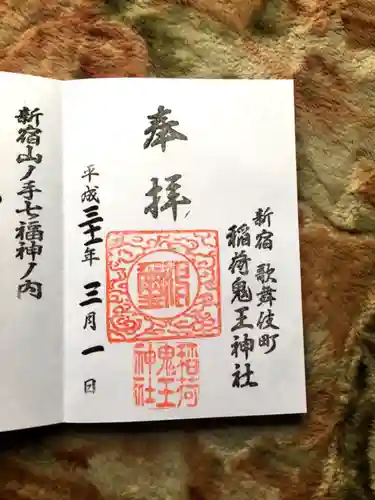 新宿 歌舞伎町
稲荷鬼王神社
奉拝
平成三十一年 三月 一日
稲荷
鬼王
神社
新宿山ノ手七福神ノ内